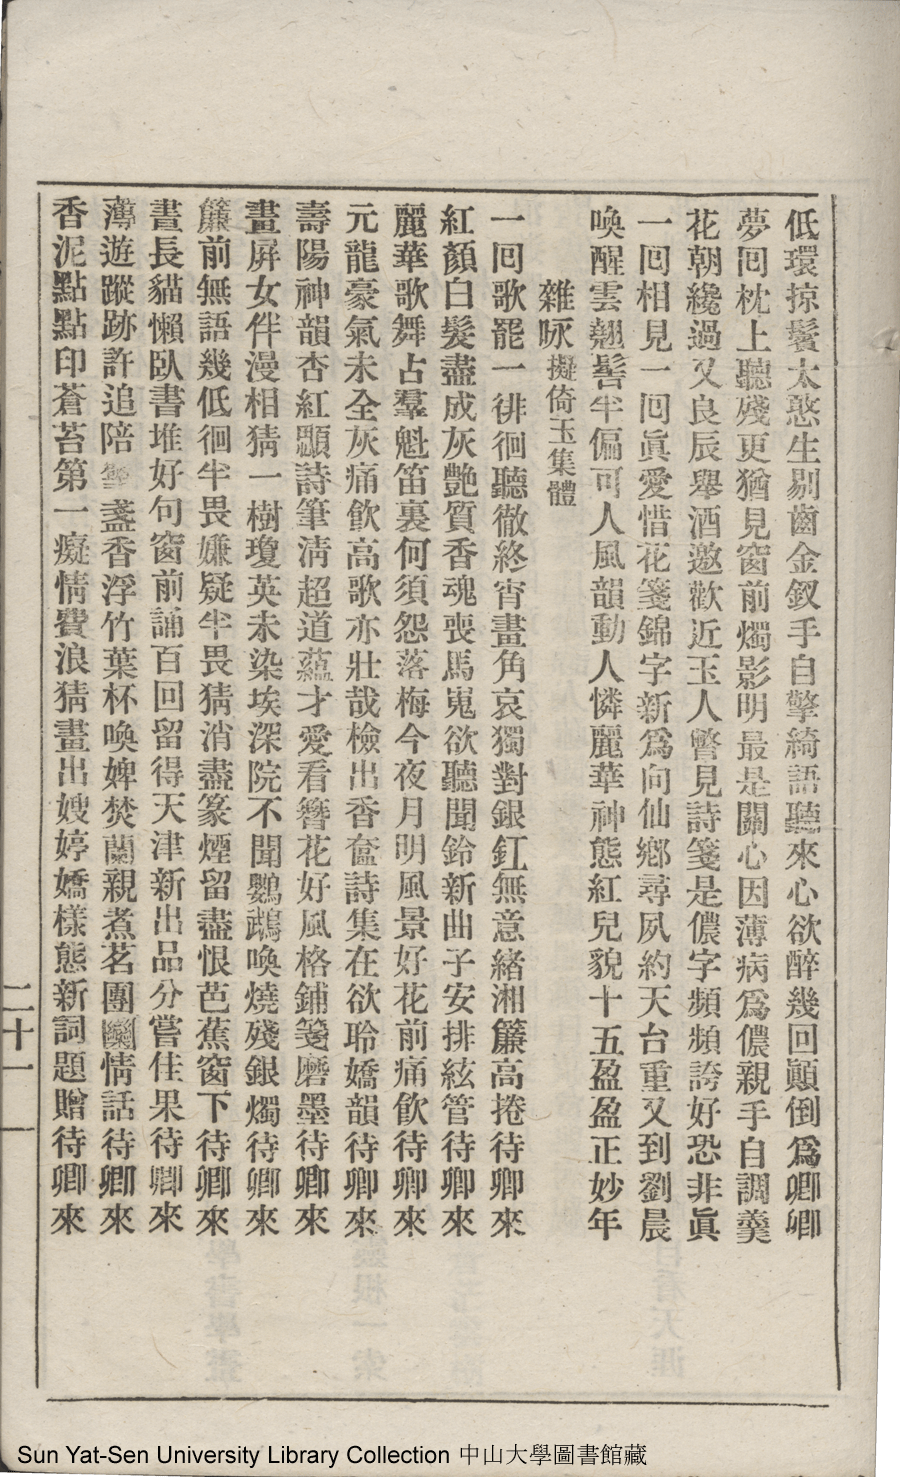 低環掠鬢太憨生剔齒金釵手自擎綺語聽來心欲醉幾回顚倒爲卿卿
夢囘枕上聽殘更猶見窗前燭影明最是關心因薄病爲儂親手自調羹
花朝纔過又良辰舉酒邀歡近玉人瞥見詩箋是儂字頻頻誇好恐非眞
一囘相見一囘眞愛惜花箋錦字新爲向仙鄉尋夙約天台重又到劉晨
喚醒雲翹髻半偏可人風韻動人憐麗華神態紅兒貌十五盈盈正妙年
雜咏擬倚玉集體
一囘歌罷一徘徊聽徹終宵畫角哀獨對銀釭無意緒湘簾高捲待卿來
紅顏白髮盡成灰艷質香魂喪馬嵬欲聽聞鈴新曲子安排絃管待卿來
麗華歌舞占羣魁笛裏何須怨落梅今夜月明風景好花前痛飮待卿來
元龍豪氣未全灰痛飮高歌亦壯哉檢出香奩詩集在欲聆嬌韻待卿來
壽陽神韻杏紅顋詩筆淸超道蘊才愛看簪花好風格鋪箋磨墨待卿來
畫屛女伴漫相猜一樹瓊英未染埃深院不聞鸚鵡喚燒殘銀燭待卿來
簾前無語幾低徊半畏嫌疑半畏猜消盡篆煙留盡恨芭蕉窗下待卿來
晝長貓懶臥書堆好句窗前誦百回留得天津新出品分嘗佳果待卿來
薄遊蹤跡許追陪盞香浮竹葉杯喚婢焚蘭親煮茗團圞情話待卿來
香泥點點印蒼苔第一癡情費浪猜畫出嫂婷嬌樣態新詞題贈待卿來
二十一
Sun Yat-Sen University Library Collection 中山大學圖書館藏